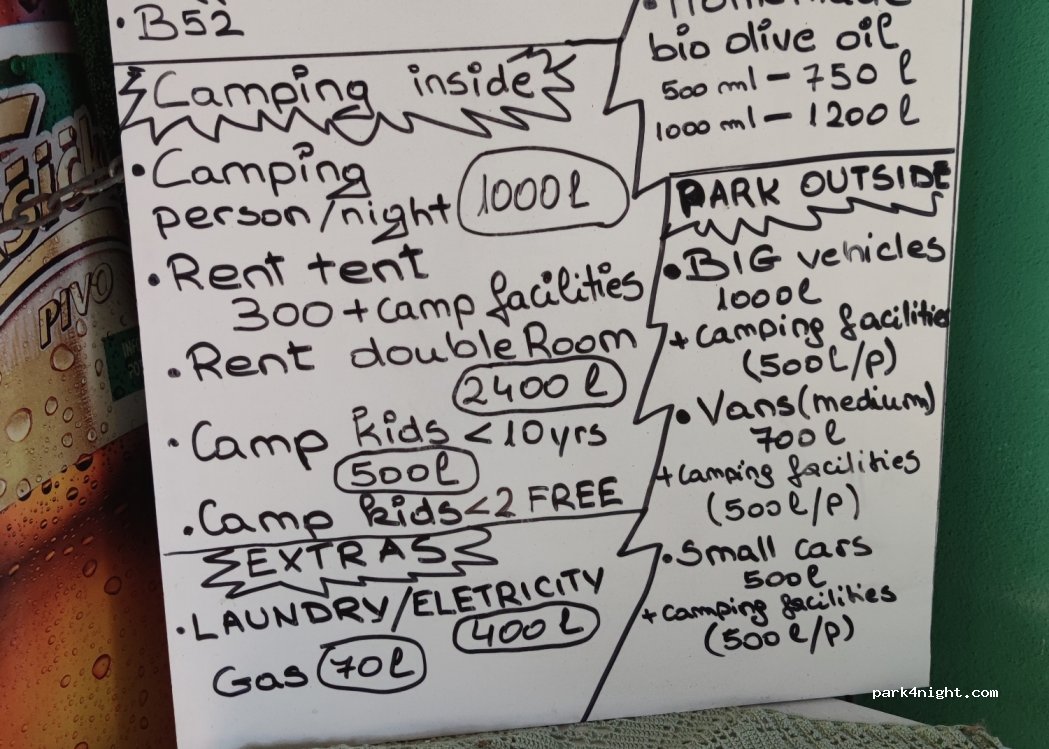 • B52
Camping inside
• Camping
person/night 1000 l
• Rent tent
300 + camp facilities
• Rent double Room
2400 l
• Camp kids < 10 yrs
500 l
• Camp kids < 2 FREE
EXTRAS
• LAUNDRY/ELETRICITY
400 l
Gas 70 l
bio olive oil
500 ml – 750 l
1000 ml – 1200 l
PARK OUTSIDE
• BIG vehicles
1000 l
+ camping facilities
(500 l/p)
• Vans (medium)
700 l
+ camping facilities
(500 l/p)
• Small cars
500 l
+ camping facilities
(500 l/p)
PIVO
park4night.com